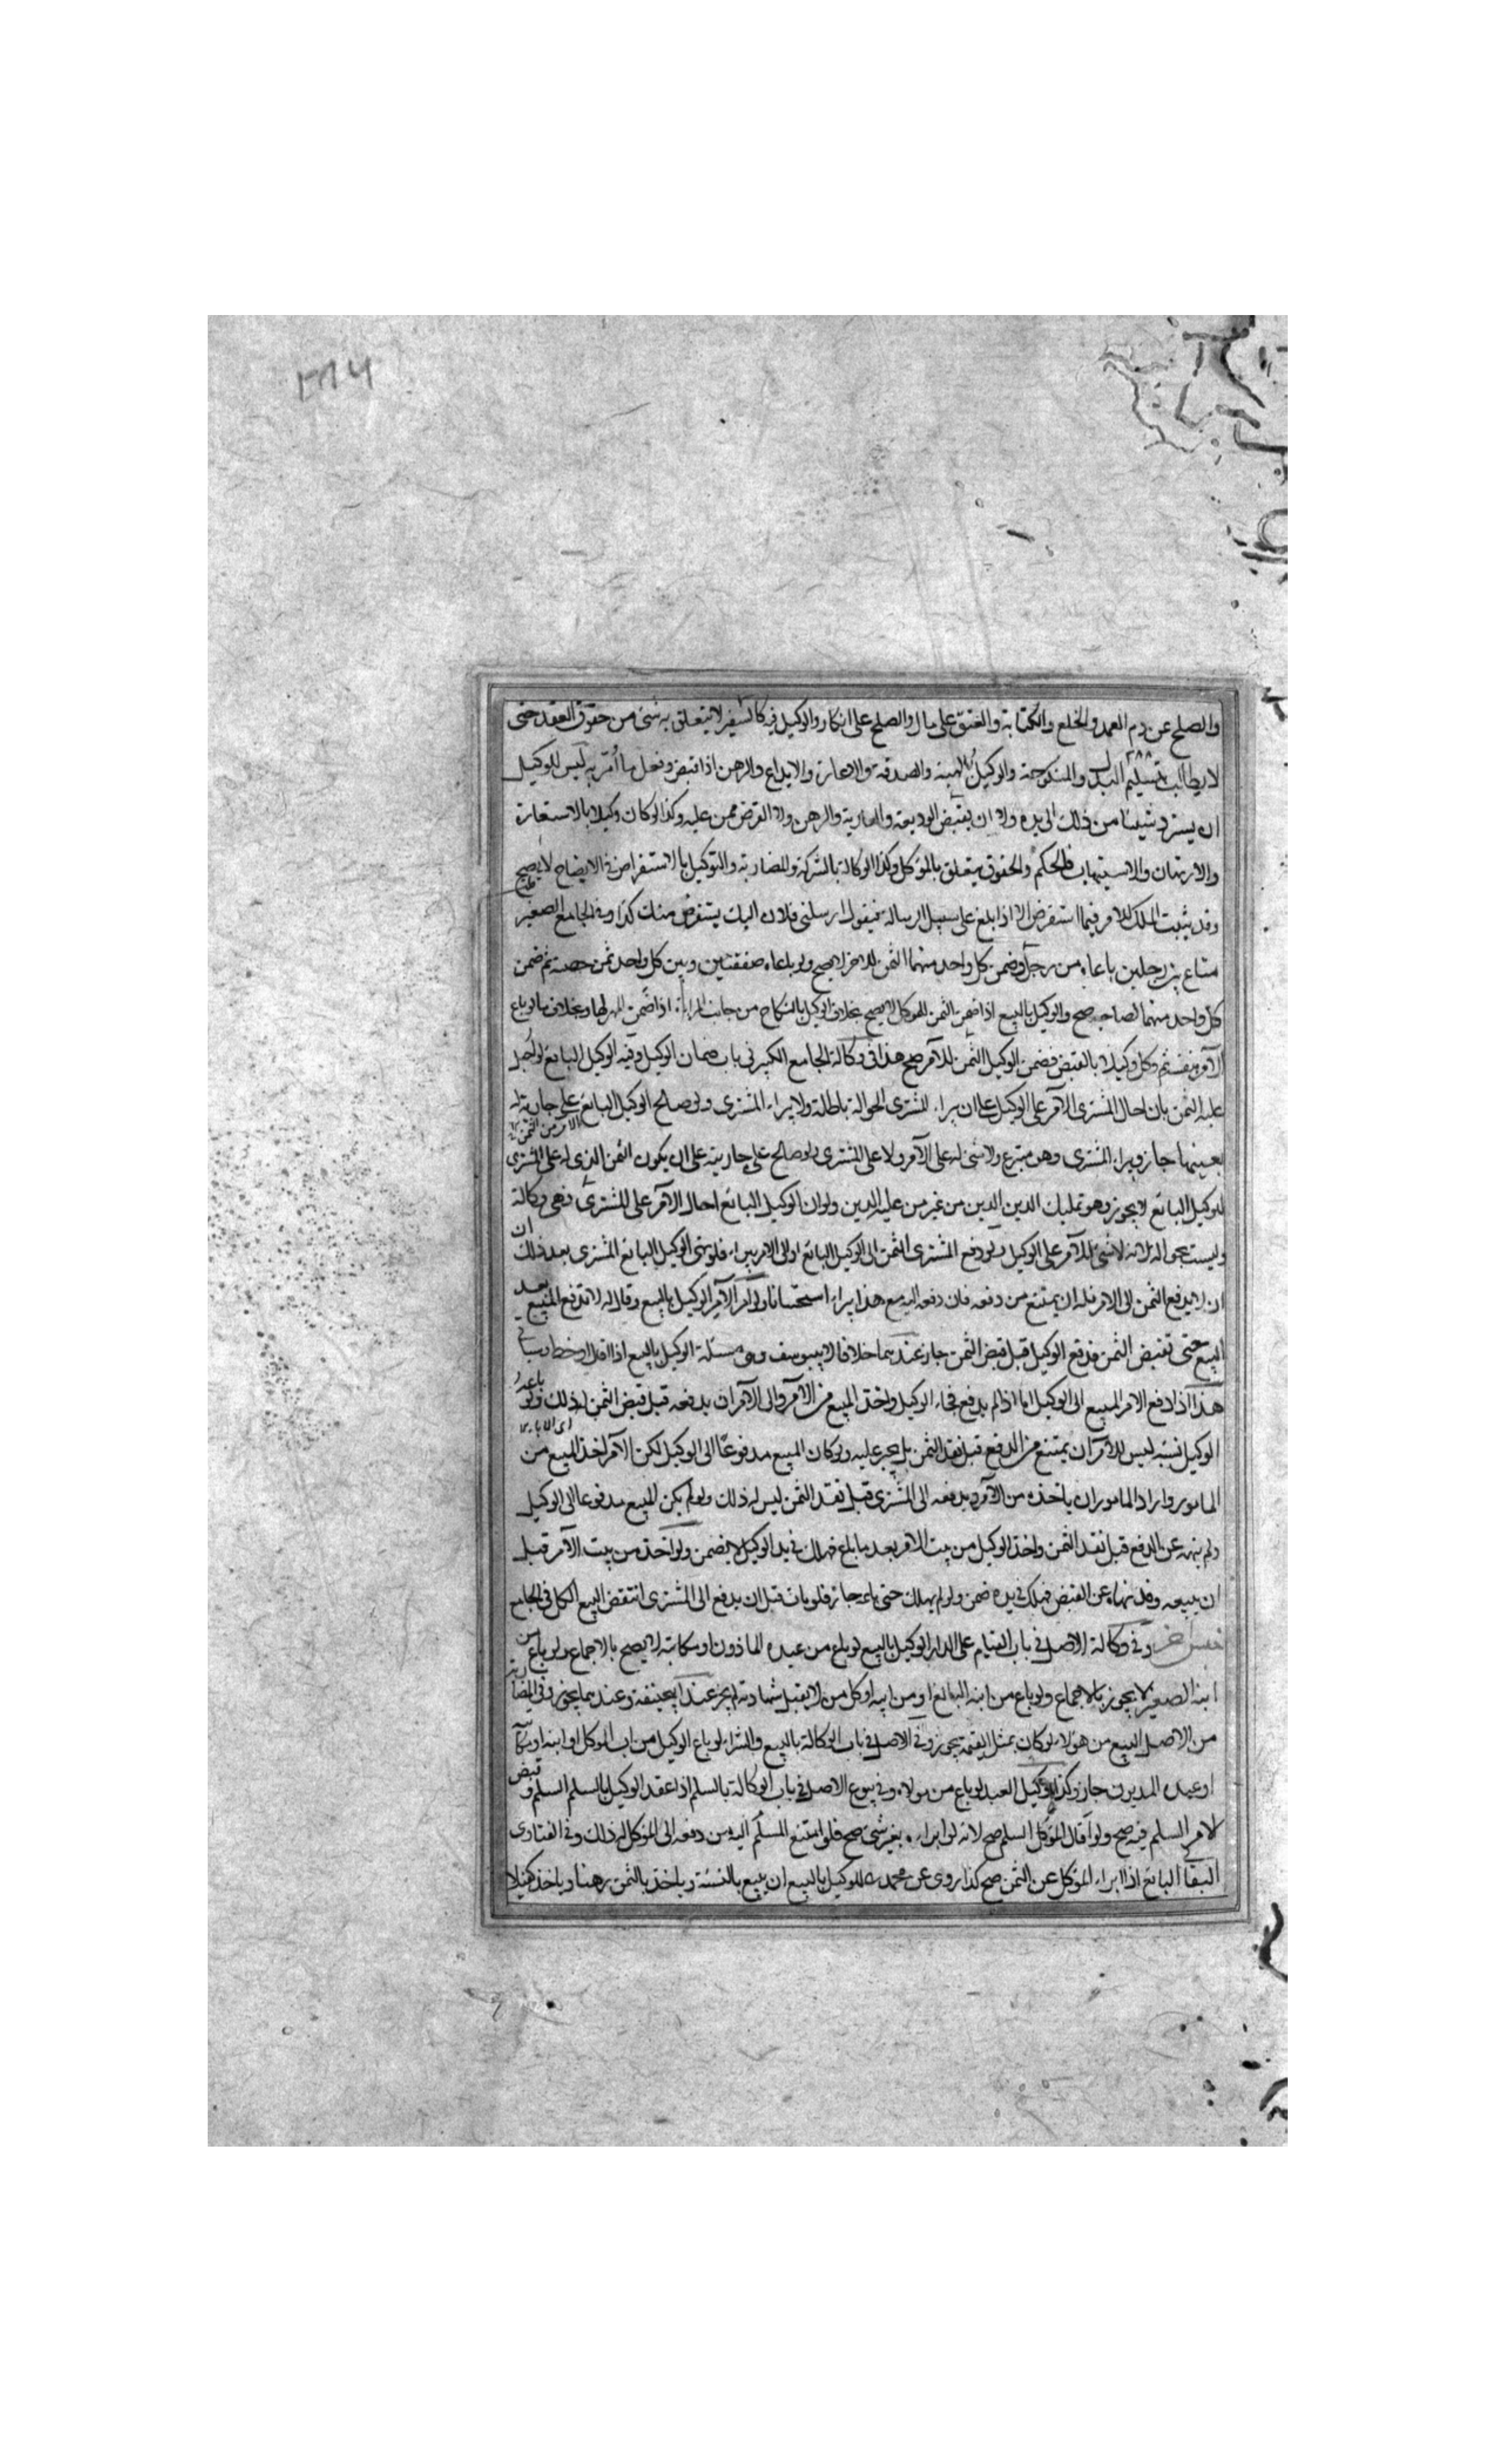 والصلح عن دم العمد والخلع والكتابة والعتق على مال والصلح على انكار والوكيل فيه كالسفير لا يتعلق به شئ من حقوق العقد حتى
لا يطالب بتسليم البدل والمنكوحة والوكيل بالهبة والصدقة والاعارة والايداع والرهن اذا قبض وفعل ما أمر به ليس للوكيل
ان يسترد شيئا من ذلك الى يده ولا ان يقبض الوديعة والعارية والرهن ولا القرض ممن عليه وكذا لو كان وكيلا بالاستعارة
والارتهان والاستيهاب فالحكم والحقوق يتعلق بالموكل وكذا الوكالة بالشركة والمضاربة والتوكيل بالاستقراض في الايضاح لا يصح
وقد يثبت الملك للآمر فيما استقرض الا اذا بلغ على سبيل الرسالة فيقول ارسلني فلان اليك يستقرض منك كذا وفي الجامع الصغير
متاع بين رجلين باعاه من رجل وضمن كل واحد منهما الثمن للاخر لا يصح ولو باعاه صفقتين وبين كل واحد ثمن حصته ثم ضمن
كل واحد منهما لصاحبه صح والوكيل بالبيع اذا ضمن الثمن للموكل لا يصح بخلاف الوكيل بالنكاح من جانب المرأة اذا ضمن المهر لها وبخلاف ما لو باع
الآمر بنفسه ثم وكل وكيلا بالقبض فضمن الوكيل الثمن للآمر صح هذا في وكالة الجامع الكبير في باب ضمان الوكيل وفيه الوكيل البائع لو احيل
عليه الثمن بان احال المشترى الآمر على الوكيل على ان براء المشترى الحوالة باطلة ولا يبراء المشترى ولو صالح الوكيل البائع على جارية له
الامر من الثمن
بعينها جاز ويبراء المشترى وهو متبرع ولا شئ له على الآمر ولا على المشترى ولو صالح على جاريته على ان يكون الثمن الذى له على المشترى
للوكيل البائع لا يجوز وهو تمليك الدين الدين من غير من عليه الدين ولو ان الوكيل البائع احال الآمر على المشترى فهى وكالة
وليست بحوالة لانه لا شئ للآمر على الوكيل ولو دفع المشترى الثمن الى الوكيل البائع او الى الامر يبراء فلو نهى الوكيل البائع المشترى بعد ذلك ان
ان لا يدفع الثمن الى الامر فله ان يمتنع من دفعه فان دفعه اليه مع هذا يبراء استحسانا ولو امر الآمر الوكيل بالبيع وقال له لا تدفع المبيع بعد
البيع حتى تقبض الثمن فدفع الوكيل قبل قبض الثمن جاز عندهما خلافا لابي يوسف وهى مسئلة الوكيل بالبيع اذا اقال او حط
هذا اذا دفع الامر المبيع الى الوكيل اما اذا لم يدفع فجاء الوكيل واخذ المبيع من الآمر والى الآمر ان يدفعه قبل قبض الثمن له ذلك ولو باعه
الوكيل نسيئة ليس للآمر ان يمتنع من الدفع قبل نقد الثمن بل يجبر عليه ولو كان المبيع مدفوعا الى الوكيل لكن الآمر اخذ المبيع من
المامور واراد المامور ان ياخذه من الآمر ويدفعه الى المشترى قبل نقد الثمن ليس له ذلك ولو لم يكن المبيع مدفوعا الى الوكيل
ولم ينهه عن الدفع قبل نقد الثمن واخذ الوكيل من بيت الامر بعد ما باع فهلك في يد الوكيل لا يضمن ولو اخذه من بيت الآمر قبل
ان يبيعه وقد نهاه عن القبض فهلك في يده ضمن ولو لم يهلك حتى باعه جاز فلو مات قبل ان يدفع الى المشترى انتقض البيع الكل في الجامع
وفي وكالة الاصل في باب القيام على الدار الوكيل بالبيع لو باع من عبده الماذون او مكاتبه لا يصح بالاجماع ولو باع من
ابنه الصغير لا يجوز بالاجماع ولو باع من ابنه البالغ او من ابيه او كل من لا يقبل شهادته له لم يجز عند ابي حنيفة وعندهما يجوز وفي المضاربة
من الاصل البيع من هؤلاء لو كان بمثل القيمة يجوز وفي الاصل في باب الوكالة بالبيع والشراء لو باع الوكيل من اب الموكل او ابنه او مكاتبه
او عبده المديون جاز وكذا الوكيل العبد لو باع من مولاه وفي بيوع الاصل في باب الوكالة بالسلم اذا عقد الوكيل بالسلم السلم وقبض
لامر السلم فيه صح ولو اقال الموكل السلم صح لانه لو ابراءه بغير شئ صح فلو امتنع المسلم اليه من دفعه الى الموكل له ذلك وفي الفتاوى
البقالي البائع اذا ابراء الموكل عن الثمن صح كذا روى عن محمد للوكيل بالبيع ان يبيع بالنسئة وياخذ بالثمن رهنا وياخذ كفيلا